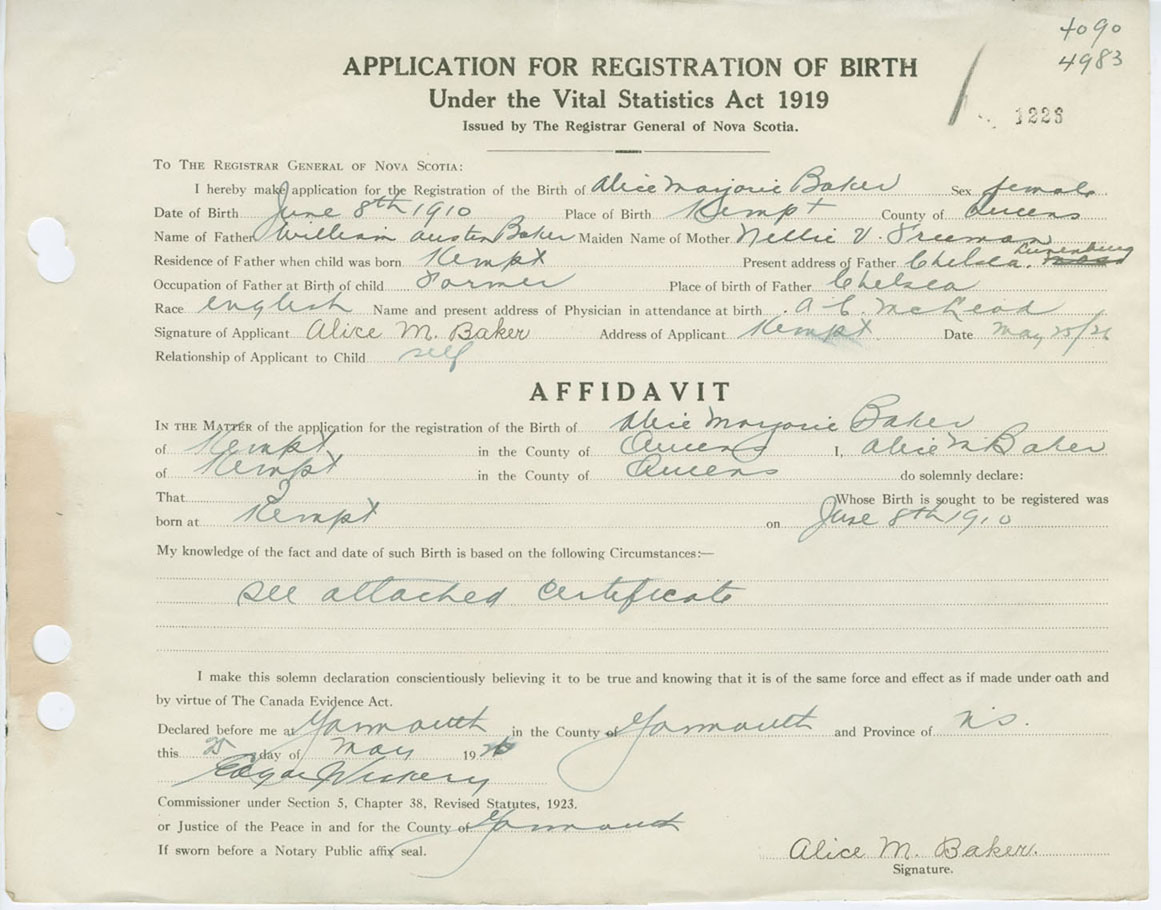 4090
4983
APPLICATION FOR REGISTRATION OF BIRTH
Under the Vital Statistics Act 1919
Issued by The Registrar General of Nova Scotia.
1223
To The Registrar General of Nova Scotia:
I hereby make application for the Registration of the Birth of Alice Marjorie Baker Sex female
Date of Birth June 8th 1910 Place of Birth Kempt County of Queens
Name of Father William Austen Baker Maiden Name of Mother Nellie V. Freeman
Residence of Father when child was born Kempt Present address of Father Chelsea, Lunenburg
Occupation of Father at Birth of child Farmer Place of birth of Father Chelsea
Race English Name and present address of Physician in attendance at birth A C. McLeod
Signature of Applicant Alice M. Baker Address of Applicant Kempt Date May 25/26
Relationship of Applicant to Child self
AFFIDAVIT
In the Matter of the application for the registration of the Birth of Alice Marjorie Baker
of Kempt in the County of Queens I, Alice M Baker
of Kempt in the County of Queens do solemnly declare:
That Whose Birth is sought to be registered was
born at Kempt on June 8th 1910
My knowledge of the fact and date of such Birth is based on the following Circumstances:—
see attached certificate
I make this solemn declaration conscientiously believing it to be true and knowing that it is of the same force and effect as if made under oath and
by virtue of The Canada Evidence Act.
Declared before me at Yarmouth in the County of Yarmouth and Province of N.S.
this 25 day of May 1926
Commissioner under Section 5, Chapter 38, Revised Statutes, 1923.
or Justice of the Peace in and for the County of Yarmouth
If sworn before a Notary Public affix seal.
Alice M. Baker.
Signature.